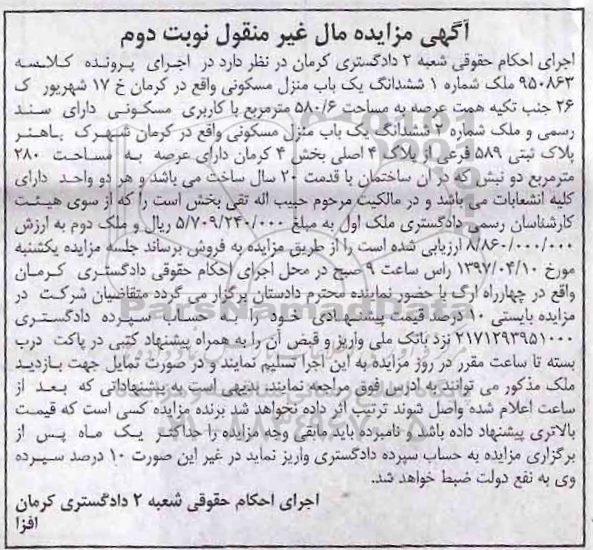 آگهی مزایده مال غیر منقول نوبت دوم
اجرای احکام حقوقی شعبه ۲ دادگستری کرمان در نظر دارد در اجرای پرونده کلاسه
۹۵۰۸۶۳ ملک شماره ۱ ششدانگ یک باب منزل مسکونی واقع در کرمان خ ۱۷ شهریور ک
۲۶ جنب تکیه همت عرصه به مساحت ۵۸۰/۶ مترمربع با کاربری مسکونی دارای سند
رسمی و ملک شماره ۲ ششدانگ یک باب منزل مسکونی واقع در کرمان شهرک باهنر
پلاک ثبتی ۵۸۹ فرعی از پلاک ۴ اصلی بخش ۴ کرمان دارای عرصه به مساحت ۲۸۰
مترمربع دو نبش که در آن ساختمان با قدمت ۲۰ سال ساخت می باشد و هر دو واحد دارای
کلیه انشعابات می باشد و در مالکیت مرحوم حبیب اله تقی بخش است را که از سوی هیئت
کارشناسان رسمی دادگستری ملک اول به مبلغ ۵/۷۰۹/۲۴۰/۰۰۰ ریال و ملک دوم به ارزش
۸/۸۶۰/۰۰۰/۰۰۰ ارزیابی شده است را از طریق مزایده به فروش برساند جلسه مزایده یکشنبه
مورخ ۱۳۹۷/۰۴/۱۰ راس ساعت ۹ صبح در محل اجرای احکام حقوقی دادگستری کرمان
واقع در چهارراه ارگ با حضور نماینده محترم دادستان برگزار می گردد متقاضیان شرکت در
مزایده بایستی ۱۰ درصد قیمت پیشنهادی خود را به حساب سپرده دادگستری
۲۱۷۱۲۹۳۹۵۱۰۰۰ نزد بانک ملی واریز و قبض آن را به همراه پیشنهاد کتبی در پاکت درب
بسته تا ساعت مقرر در روز مزایده به این اجرا تسلیم نمایند و در صورت تمایل جهت بازدید
ملک مذکور می توانند به آدرس فوق مراجعه نمایند. بدیهی است به پیشنهاداتی که بعد از
ساعت اعلام شده واصل شوند ترتیب اثر داده نخواهد شد برنده مزایده کسی است که قیمت
بالاتری پیشنهاد داده باشد و نامبرده باید مابقی وجه مزایده را حداکثر یک ماه پس از
برگزاری مزایده به حساب سپرده دادگستری واریز نماید در غیر این صورت ۱۰ درصد سپرده
وی به نفع دولت ضبط خواهد شد.
اجرای احکام حقوقی شعبه ۲ دادگستری کرمان
افزا